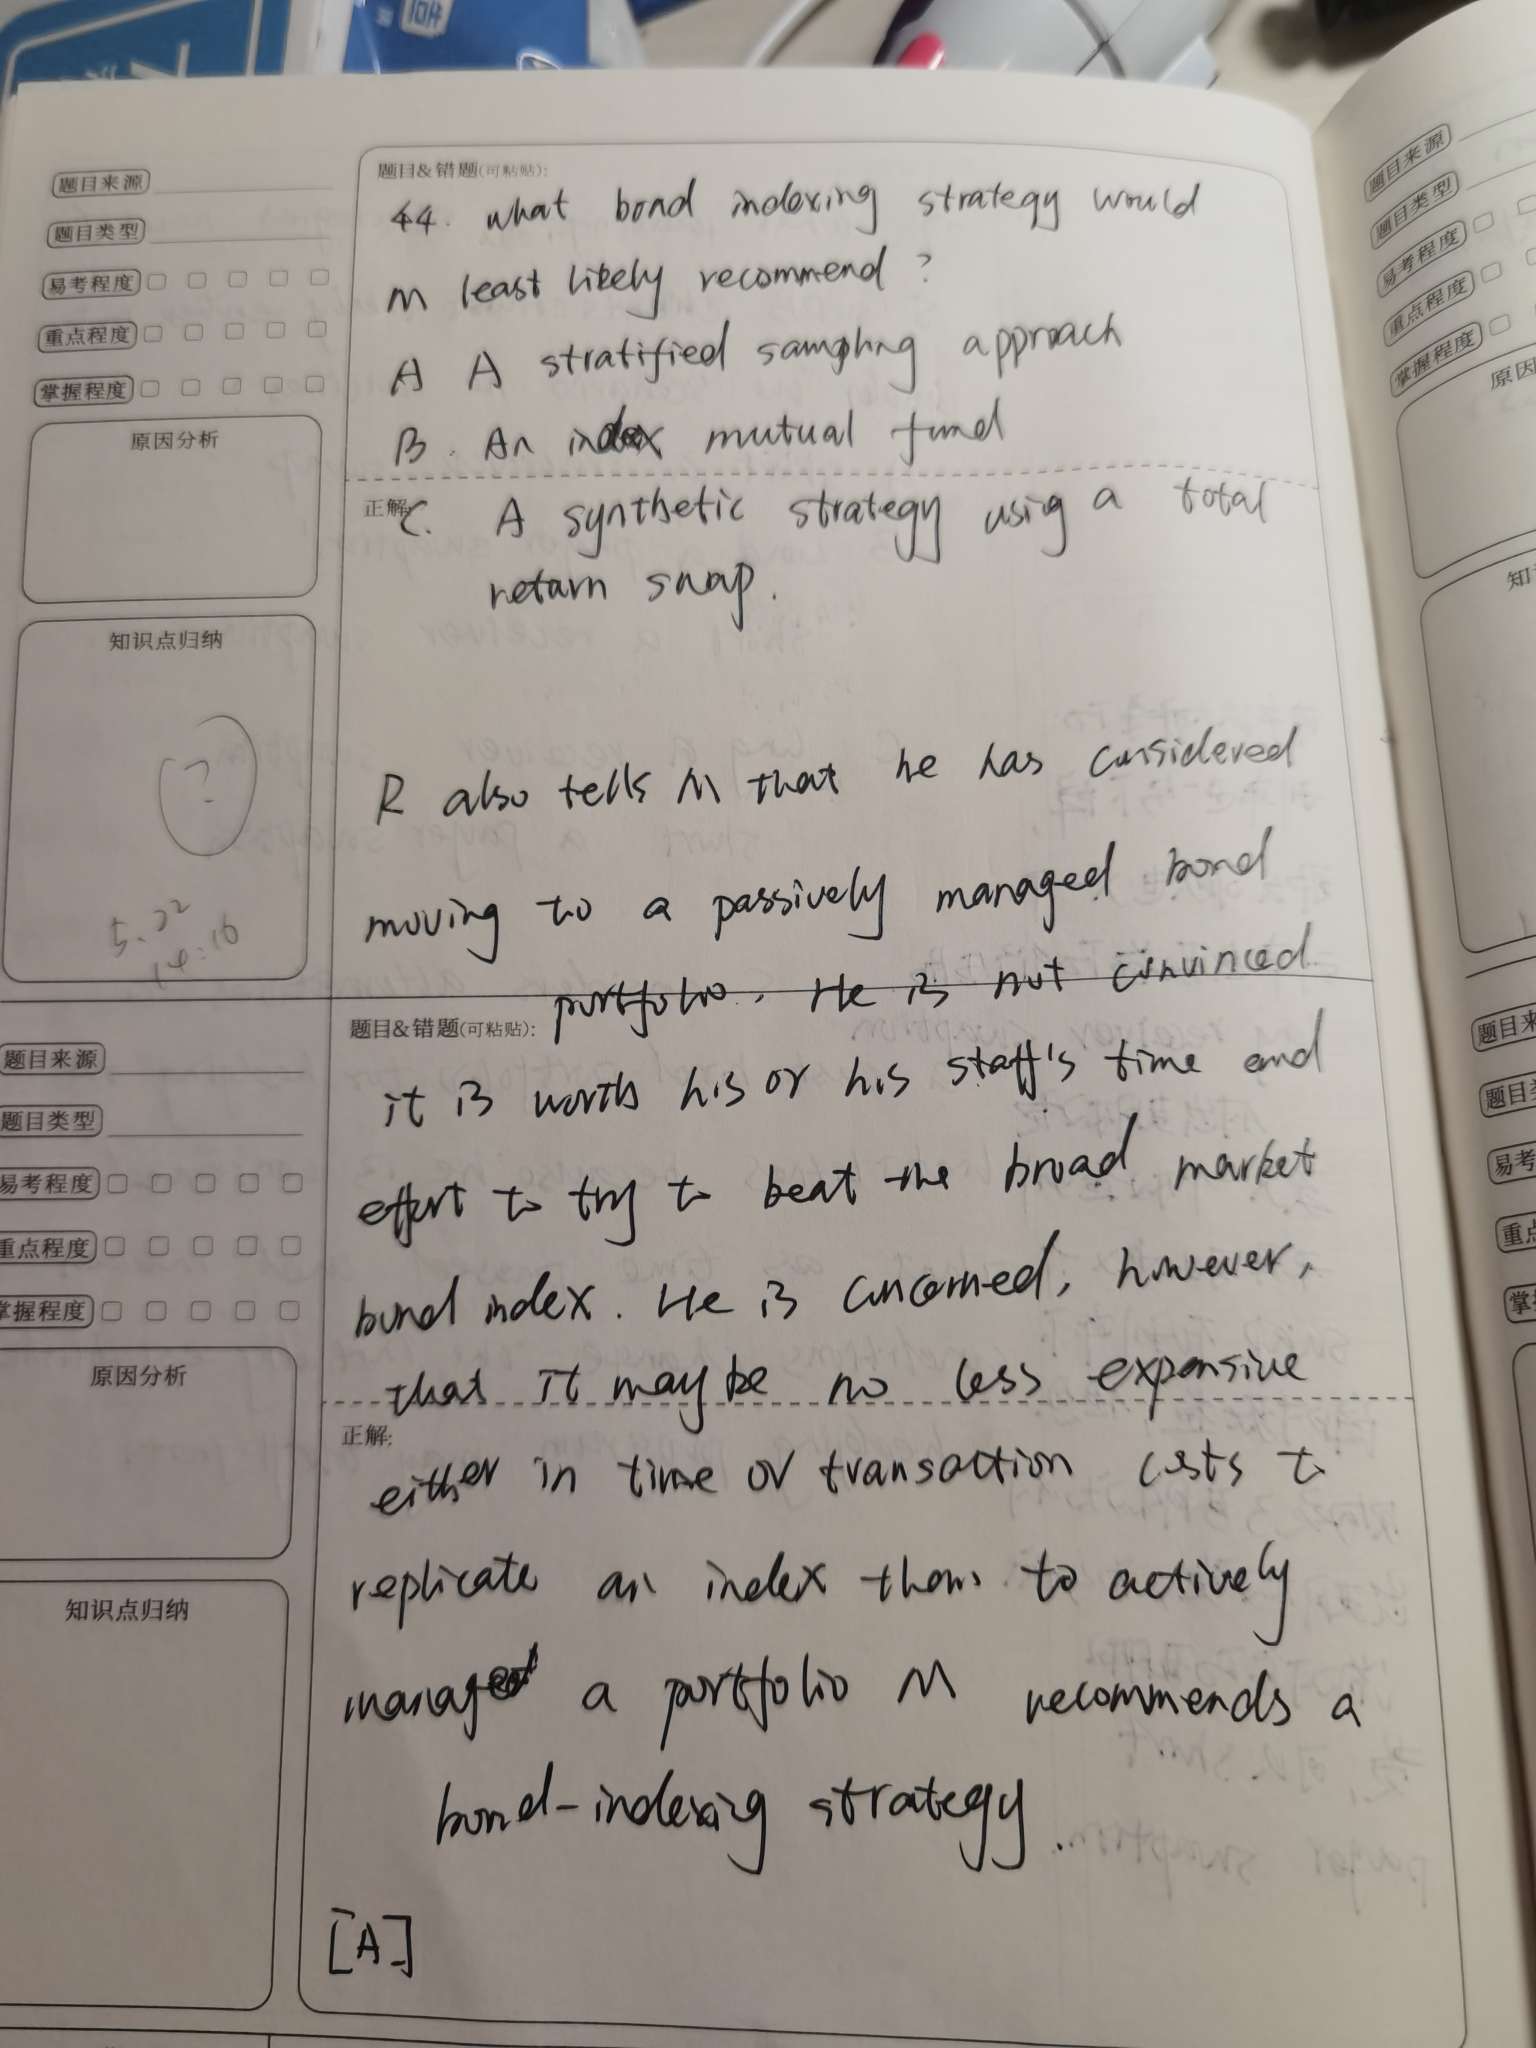 题目来源
题目类型
易考程度
重点程度
掌握程度
原因分析
知识点归纳
?
5.22
14:16
题目&错题(可粘贴):
44. what bond indexing strategy would
M least likely recommend?
A A stratified sampling approach
B. An index mutual fund
正解:
C. A synthetic strategy using a total
return swap.
R also tells M that he has considered
moving to a passively managed bond
portfolio. He is not convinced
题目来源
题目类型
易考程度
重点程度
掌握程度
原因分析
知识点归纳
题目&错题(可粘贴):
it is worth his or his staff's time and
effort to try to beat the broad market
bond index. He is concerned, however,
that it may be no less expensive
正解:
either in time or transaction costs to
replicate an index than to actively
manage a portfolio M recommends a
bond-indexing strategy.
[A]
题目来源
题目类型
易考程度
重点程度
掌握程度
原因
知
题目来
题目类
易考
重点
掌